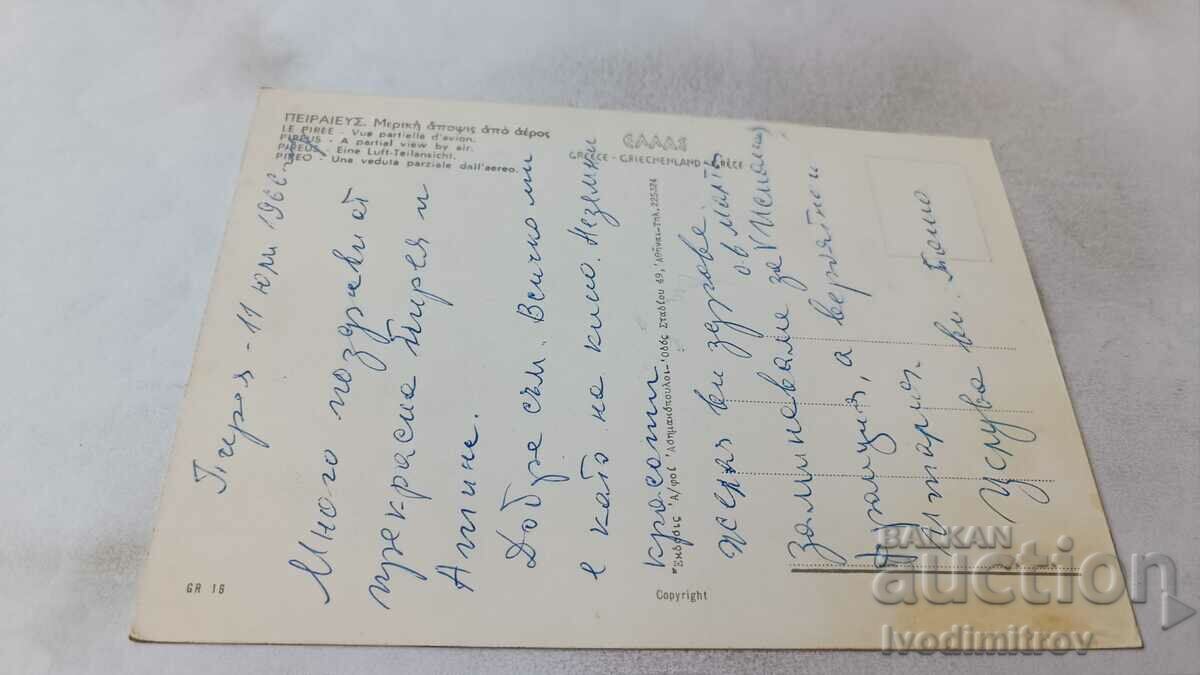 ΠΕΙΡΑΙΕΥΣ. Μερικὴ ἄποψις ἀπὸ ἀέρος
LE PIRÉE - Vue partielle d'avion.
PIREUS - A partial view by air.
PIREUS - Eine Luft-Teilansicht.
PIREO - Una veduta parziale dall'aereo.
ΕΛΛΑΣ
GREECE - GRIECHENLAND - GRÈCE
Пирея - 11 юли 196
Много поздрави от
прекрасна Пирея и
Атина.
Добре съм. Всичко ми
е като на кино. Неземни
красоти.
Желая ви здраве.
заминаваме за Испания,
Франция, а вероятно и
Италия.
Целува ви
Ἔκδοσις Ἀ/φοὶ Ἀσημακόπουλοι - Ὁδὸς Σταδίου 69, Ἀθῆναι - Τηλ. 225.324
GR 16
Copyright
BALKAN
auction
Ivodimitrov